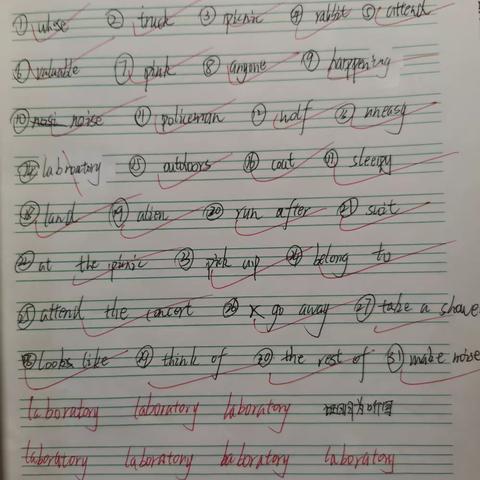 ① whose ② truck ③ picnic ④ rabbit ⑤ attend
⑥ valuable ⑦ pink ⑧ anyone ⑨ happening
⑩ noise ⑪ policeman ⑫ wolf ⑬ uneasy
⑭ laboratory ⑮ outdoors ⑯ coat ⑰ sleepy
⑱ land ⑲ alien ⑳ run after ㉑ suit
㉒ at the picnic ㉓ pick up ㉔ belong to
㉕ attend the concert ㉖ go away ㉗ take a showe
㉘ looks like ㉙ think of ㉚ the rest of ㉛ make noise
laboratory laboratory laboratory
laboratory laboratory laboratory laboratory